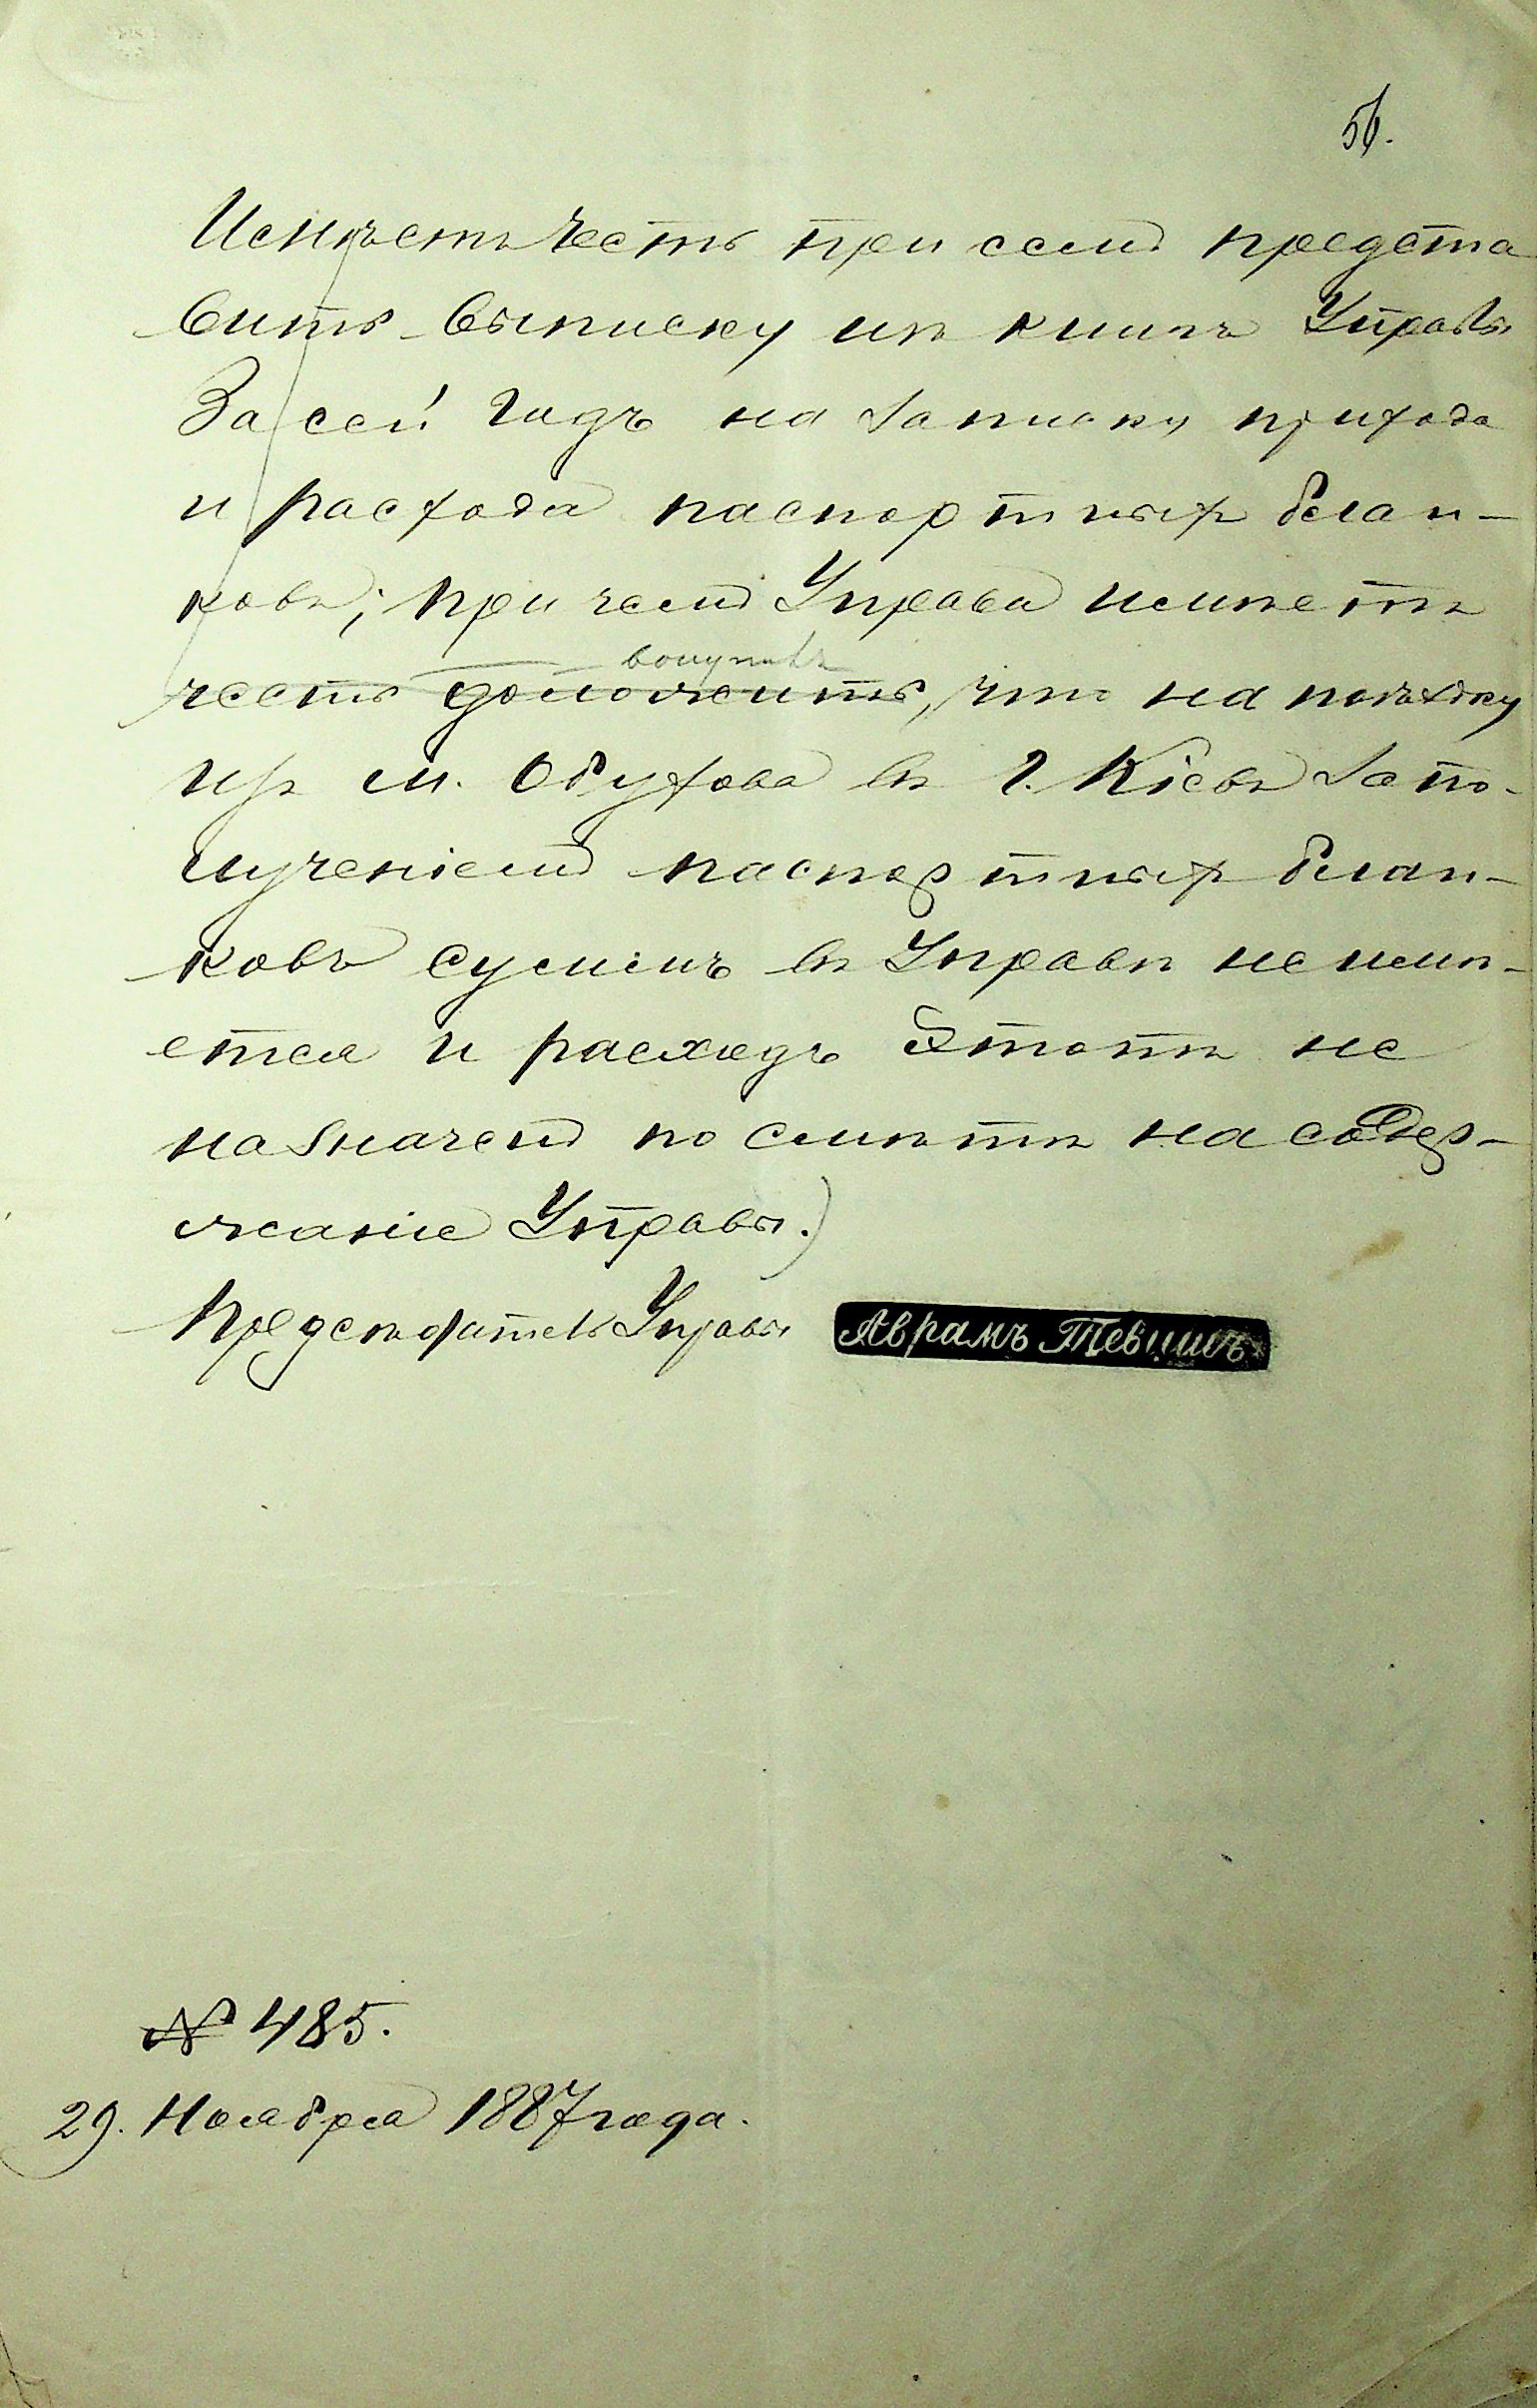 56.
Имѣетъ честь при семъ предста
вить выписку изъ книгъ Управы
За сей годъ на записку прихода
и расхода паспортныхъ блан-
ковъ; при чемъ Управа имѣетъ
честь доложить, что на поѣздку
изъ м. Обухова въ г. Кіевъ за по-
лученіемъ паспортныхъ блан-
ковъ суммъ въ Управѣ не имѣ-
ется и расходъ Этотъ не
назначенъ по смѣтѣ на содер-
жаніе Управы.)
Предсѣдатель Управы Аврамъ
№ 485.
29. Ноября 1887 года.